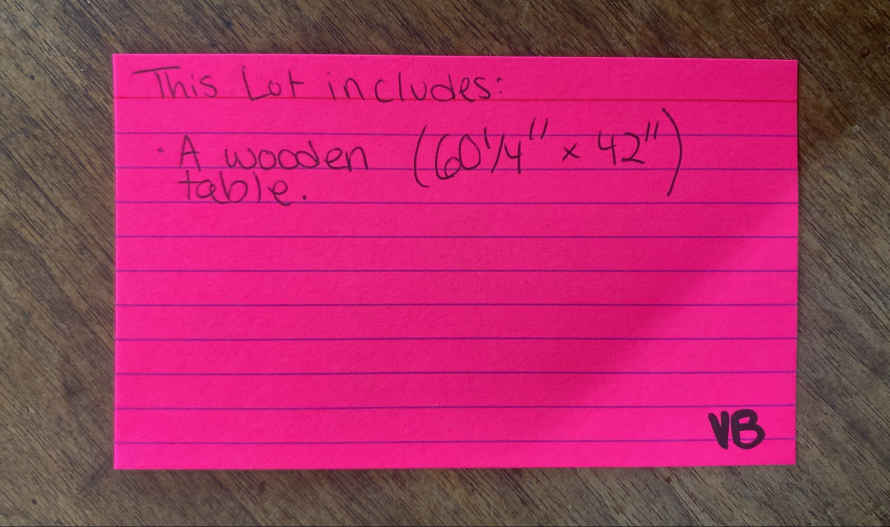 This Lot includes:
· A wooden (60 1/4" x 42")
table.
VB